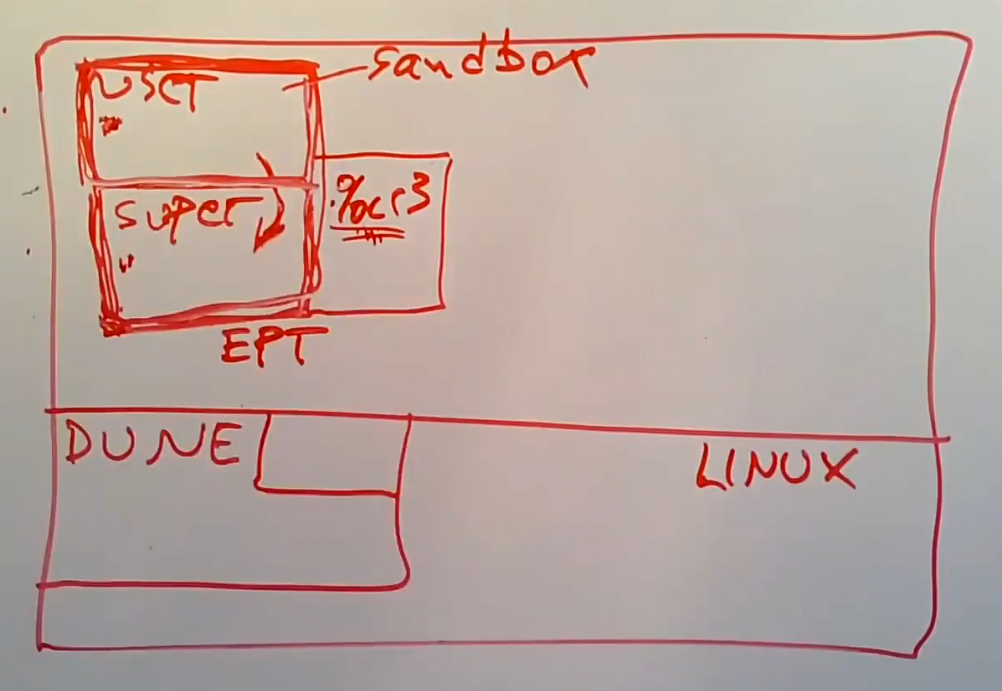 user
sandbox
super
%cr3
EPT
DUNE
LINUX